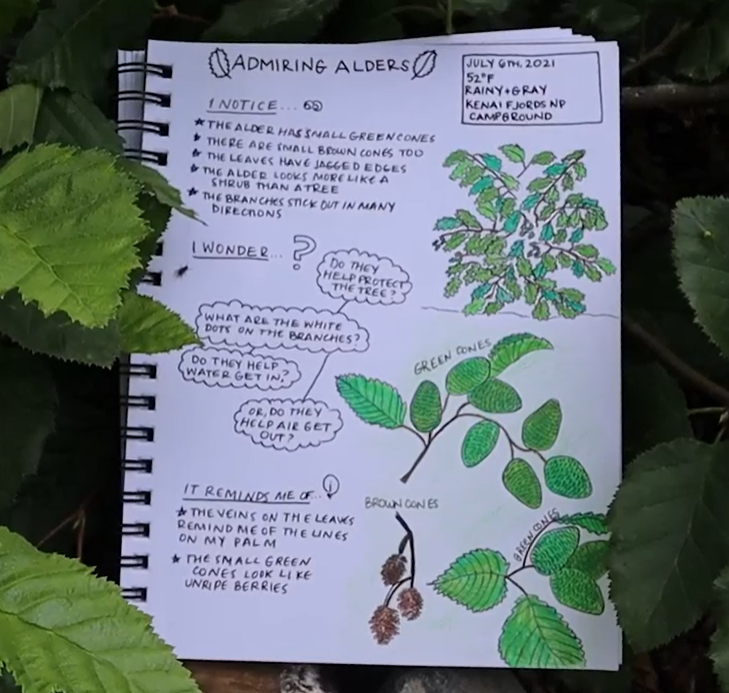 ADMIRING ALDERS
JULY 6TH, 2021
52°F
RAINY + GRAY
KENAI FJORDS NP
CAMPGROUND
I NOTICE...
★ THE ALDER HAS SMALL GREEN CONES
★ THERE ARE SMALL BROWN CONES TOO
★ THE LEAVES HAVE JAGGED EDGES
★ THE ALDER LOOKS MORE LIKE A
SHRUB THAN A TREE
★ THE BRANCHES STICK OUT IN MANY
DIRECTIONS
I WONDER... ?
DO THEY
HELP PROTECT
THE TREE?
WHAT ARE THE WHITE
DOTS ON THE BRANCHES?
DO THEY HELP
WATER GET IN?
OR, DO THEY
HELP AIR GET
OUT?
GREEN CONES
IT REMINDS ME OF...
★ THE VEINS ON THE LEAVES
REMIND ME OF THE LINES
ON MY PALM
★ THE SMALL GREEN
CONES LOOK LIKE
UNRIPE BERRIES
BROWN CONES
GREEN CONES